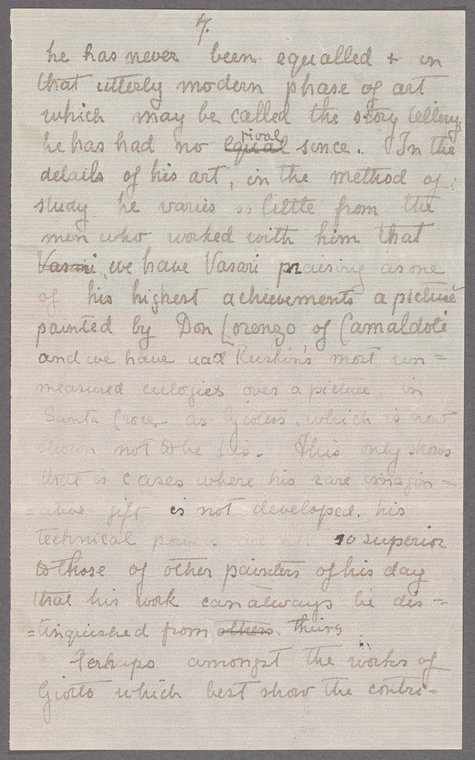 7.
he has never been equalled + in
that utterly modern phase of art
which may be called the story telling
he has had no equal rival since. In the
details of his art, in the method of
study he varies so little from the
men who worked with him that
Vasari, we have Vasari praising as one
of his highest achievements a picture
painted by Don Lorenzo, of Camaldoli
and we have read Ruskin's most un=
measured eulogies over a picture in
Santa Croce as Giotto's, which is now
shown not to be his. This only shows
that in cases where his rare imagin=
=ative gift is not developed, his
technical powers are not so superior
to those of other painters of his day
that his work can always be dis=
=tinguished from others. theirs
Perhaps amongst the works of
Giotto which best show the contri=